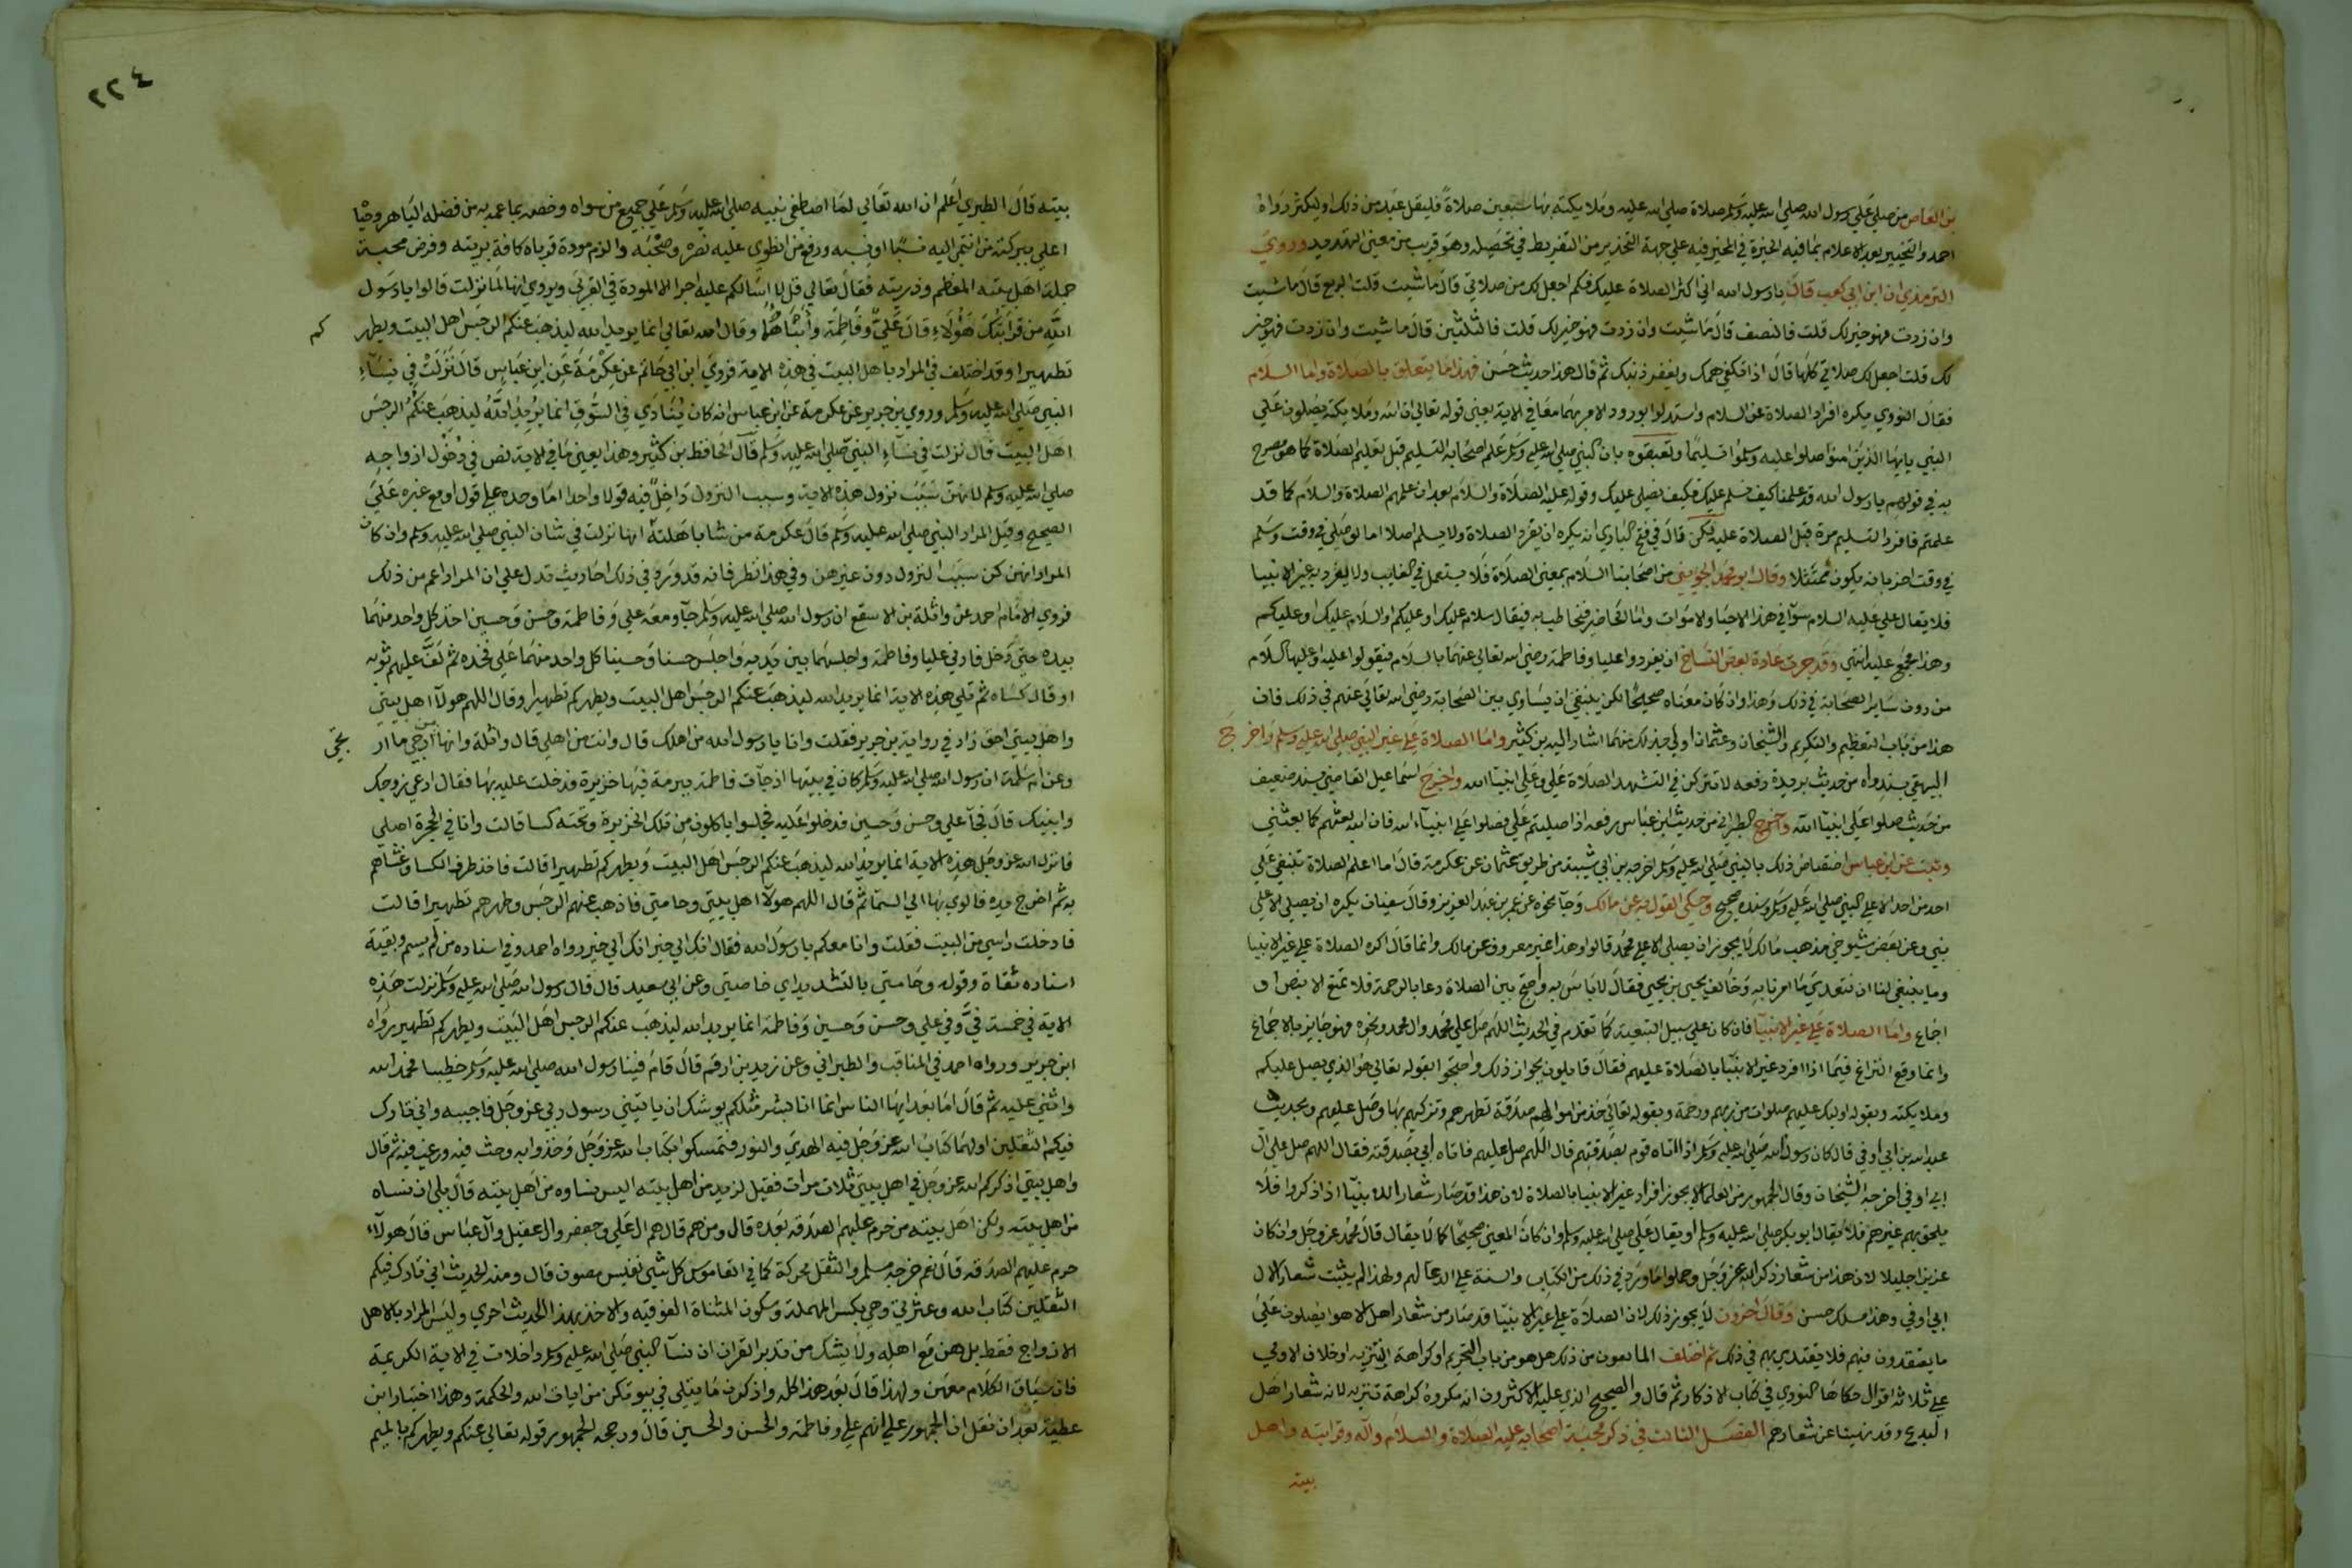 بن العاص من صلي علي رسول الله صلي الله عليه وسلم صلاة صلي الله عليه وملايكته بها سبعين صلاة فليقل عبد من ذلك او ليكثر رواه
احمد والتخيير بعد الاعلام بما فيه الخيرة في المخير فيه علي جهة التحذير من التفريط في تحصيله وهو قريب من معني التهديد وروي
الترمذي ان ابن ابي كعب قال يا رسول الله اني اكثر الصلاة عليك فكم اجعل لك من صلاتي قال ما شيت قلت الربع قال ما شيت
وان زدت فهو خير لك قلت فالنصف قال ما شيت وان زدت فهو خير لك قلت فالثلثين قال ما شيت وان زدت فهو خير
لك قلت اجعل لك صلاتي كلها قال اذا تكفي همك ويغفر ذنبك ثم قال هذا حديث حسن فهذا ما يتعلق بالصلاة واما السلام
فقال النووي يكره افراد الصلاة عن السلام واستدلوا بورود الامر بهما معا في الاية يعني قوله تعالي ان الله وملايكته يصلون علي
النبي يايها الذين امنوا صلوا عليه وسلموا تسليما وتعقبوه بان النبي صلي الله عليه وسلم علم اصحابه التسليم قبل تعليم الصلاة كما هو مصرح
به في قولهم يا رسول الله قد علمنا كيف نسلم عليك فكيف نصلي عليك وقوله عليه الصلاة والسلام بعد ان علمهم الصلاة والسلام كما قد
علمتم فافرد التسليم مرة قبل الصلاة عليه لكن قال في فتح الباري انه يكره ان يفرد الصلاة ولا يسلم اصلا اما لو صلي في وقت وسلم
في وقت اخر فانه يكون ممتثلا وقال ابو محمد الجويني من اصحابنا السلام بمعني الصلاة فلا يستعمل في الغايب ولا يفرد به غير الانبيا
فلا يقال علي عليه السلام سوآ في هذا الاحيا والاموات واما الحاضر فيخاطب به فيقال سلام عليك او عليكم او السلام عليك او عليكم
وهذا مجمع عليه انتهي وقد جرت عادة بعض النساخ ان يفردوا عليا وفاطمة رضي الله تعالي عنهما بالسلام فيقولوا عليه او عليها السلام
من دون ساير الصحابة في ذلك وهذا وان كان معناه صحيحا لكن ينبغي ان يساوي بين الصحابة رضي الله تعالي عنهم في ذلك فان
هذا من باب التعظيم والتكريم والشيخان وعثمان اولي بذلك منهما اشار اليه بن كثير واما الصلاة علي غير النبي صلي الله عليه وسلم واخرج
البيهقي بسند واه من حديث بريدة رفعه لا تتركن في التشهد الصلاة علي وعلي انبيا الله واخرج اسماعيل القاضي بسند ضعيف
من حديث صلوا علي انبيآ الله واخرج الطبراني من حديث ابن عباس رفعه اذا صليتم علي فصلوا علي انبيآء الله فان الله بعثهم كما بعثني
وثبت عن ابن عباس اختصاص ذلك بالنبي صلي الله عليه وسلم اخرجه بن ابي شيبة من طريق عثمان عن عكرمة قال ما اعلم الصلاة تنبغي علي
احد من احد الا علي النبي صلي الله عليه وسلم وسنده صحيح وحكي القول به عن مالك وجآ نحوه عن عمر بن عبد العزيز وقال سفيان يكره ان يصلي الا علي
نبي وعن بعض شيوخي مذهب مالك لا يجوز ان يصلي الا علي محمد قالوا وهذا غير معروف عن مالك وانما قال اكره الصلاة علي غير الانبيا
وما ينبغي لنا ان نتعدي ما امرنا به وخالف يحيي بن يحيي فقال لا باس به واحتج بين الصلاة دعا بالرحمة فلا تمنع الا بنص او
اجماع واما الصلاة علي غير الانبيآ فان كان علي سبيل التبعية كما تقدم في الحديث اللهم صل علي محمد وال محمد ونحوه فهو جايز بالاجماع
وانما وقع النزاع فيما اذا افرد غير الانبيا بالصلاة عليهم فقال قايلون بجواز ذلك واحتجوا بقوله تعالي هو الذي يصلي عليكم
وملايكته وبقوله اوليك عليهم صلوات من ربهم ورحمة وبقوله تعالي خذ من اموالهم صدقة تطهرهم وتزكيهم بها وصل عليهم وبحديث
عبد الله بن ابي اوفي قال كان رسول الله صلي الله عليه وسلم اذا اتاه قوم بصدقتهم قال اللهم صل عليهم فاتاه ابي بصدقته فقال اللهم صل علي آل
ابي اوفي اخرجه الشيخان وقال الجمهور من العلما لا يجوز افراد غير الانبيا بالصلاة لان هذا قد صار شعار الانبيآ اذا ذكروا فلا
يلحق بهم غيرهم فلا يقال ابو بكر صلي الله عليه وسلم او يقال علي صلي الله عليه وسلم وان كان المعني صحيحا كما لا يقال قال محمد عز وجل وان كان
عزيزا جليلا لان هذا من شعار ذكر الله عز وجل وحملوا ما ورد في ذلك من الكتاب والسنة علي الدعآ لهم ولهذا لم يثبت شعارا لال
ابي اوفي وهذا مسلك حسن وقال اخرون لا يجوز ذلك لان الصلاة علي غير الانبيا قد صار من شعار اهل الاهوا يصلون علي
ما يعتقدون فيهم فلا يقتدي بهم في ذلك ثم اختلف المانعون من ذلك هل هو من باب التحريم او كراهة التنزيه او خلاف الاولي
علي ثلاثة اقوال حكاها النووي في كتاب الاذكار ثم قال والصحيح الذي عليه الاكثرون انه مكروه كراهة تنزيه لانه شعار اهل
البدع وقد نهينا عن شعارهم الفصل الثالث في ذكر محبة اصحابه عليه الصلاة والسلام وآله وقرابته واهل
بيته
٢٢٤
بيته قال الطبري اعلم ان الله تعالي لما اصطفي نبيه صلي الله عليه وسلم علي جميع من سواه وخصه بما عمه به من فضله الباهر وحبا
اعلي ببركته من انتمي اليه نسبا او نسبه ورفع من انطوي عليه نصره وصحبه والزم مودة قرباه كافة بريته وفرض محبة
جملة اهل بيته المعظم وذريته فقال تعالي قل لا اسالكم عليه اجرا الا المودة في القربي ويروي انها لما نزلت قالوا يا رسول
الله من قرابتك هؤلاء قال علي وفاطمة وابناهما وقال الله تعالي انما يريد الله ليذهب عنكم الرجس اهل البيت ويطهر
كم
تطهيرا وقد اختلف في المراد باهل البيت في هذه الاية فروي ابن ابي حاتم عن عكرمة عن ابن عباس قال نزلت في نسآء
النبي صلي الله عليه وسلم وروي بن جرير عن عكرمة عن ابن عباس انه كان ينادي في السوق انما يريد الله ليذهب عنكم الرجس
اهل البيت قال نزلت في نسآء النبي صلي الله عليه وسلم قال الحافظ بن كثير وهذا يعني ما في الاية نص في دخول ازواجه
صلي الله عليه وسلم لانهن سبب نزول هذه الاية وسبب النزول داخل فيه قولا واحدا اما وحده علي قول او مع غيره علي
الصحيح وقيل المراد النبي صلي الله عليه وسلم قال عكرمة من شا باهلته انها نزلت في شان النبي صلي الله عليه وسلم وان كان
المراد انهن كن سبب النزول دون غيرهن وفي هذا نظر فانه قد ورد في ذلك احاديث تدل علي ان المراد اعم من ذلك
فروي الامام احمد عن واثلة بن الاسقع ان رسول الله صلي الله عليه وسلم جآء ومعه علي وفاطمة وحسن وحسين اخذ كل واحد منهما
بيده حتي دخل فادني عليا وفاطمة واجلسهما بين يديه واجلس حسنا وحسينا كل واحد منهما علي فخذه ثم لف عليهم ثوبه
او قال كساه ثم تلي هذه الاية انما يريد الله ليذهب عنكم الرجس اهل البيت ويطهركم تطهيرا وقال اللهم هولآ اهل بيتي
واهل بيتي احق زاد في رواية بن جرير فقلت وانا يا رسول الله من اهلك قال وانت من اهلي قال واثلة وانها من ارجي ما ار
تجي
وعن ام سلمة ان رسول الله صلي الله عليه وسلم كان في بيتها اذ جآت فاطمة ببرمة فيها خزيرة فدخلت عليه بها فقال ادعي زوجك
وابنيك قال فجآ علي وحسن وحسين فدخلوا عليه فجلسوا ياكلون من تلك الخزيرة وتحته كسا قالت وانا في الحجرة اصلي
فانزل الله عز وجل هذه الاية انما يريد الله ليذهب عنكم الرجس اهل البيت ويطهركم تطهيرا قالت فاخذ طرف الكسا وغشاهم
به ثم اخرج يده فالوي بها الي السما ثم قال اللهم هولآ اهل بيتي وحامتي فاذهب عنهم الرجس وطهرهم تطهيرا قالت
فادخلت راسي من البيت فقلت وانا معكم يا رسول الله فقال انك الي خير انك الي خير رواه احمد وفي اسناده من لم يسم وبقية
اسناده ثقاة وقوله وحامتي بالتشديد اي خاصتي وعن ابي سعيد قال قال رسول الله صلي الله عليه وسلم نزلت هذه
الاية في خمسة فيّ وفي علي وحسن وحسين وفاطمة انما يريد الله ليذهب عنكم الرجس اهل البيت ويطهركم تطهيرا رواه
ابن جرير ورواه احمد في المناقب والطبراني وعن زيد بن ارقم قال قام فينا رسول الله صلي الله عليه وسلم خطيبا فحمد الله
واثني عليه ثم قال اما بعد ايها الناس انما انا بشر مثلكم يوشك ان ياتيني رسول ربي عز وجل فاجيبه واني تارك
فيكم الثقلين اولهما كتاب الله عز وجل فيه الهدي والنور فتمسكوا بكتاب الله عز وجل وخذوا به وحث فيه ورغب فيه ثم قال
واهل بيتي اذكركم الله عز وجل في اهل بيتي ثلاث مرات فقيل لزيد من اهل بيته اليس نساوه من اهل بيته قال بلي ان نساه
من اهل بيته ولكن اهل بيته من حرم عليهم الصدقة بعده قال ومن هم قال هم ال علي وجعفر وال عقيل وآل عباس قال هولآء
حرم عليهم الصدقة قال نعم خرجه مسلم والثقل محركة كما في القاموس كل شيي نفيس مصون قال ومنه الحديث اني تارك فيكم
الثقلين كتاب الله وعترتي وهي بكسر المهملة وسكون المثناة الفوقية والاخذ بهذا الحديث احري وليس المراد بالاهل
الازواج فقط بل هن مع اهله ولا يشك من تدبر القران ان نسآ النبي صلي الله عليه وسلم داخلات في الاية الكريمة
فان سياق الكلام معهن ولهذا قال بعد هذا كله واذكرن ما يتلي في بيوتكن من ايات الله والحكمة وهذا اختيار ابن
عطية بعد ان نقل ان الجمهور علي انهم علي وفاطمة والحسن والحسين قال وحجة الجمهور قوله تعالي عنكم ويطهركم بالميم